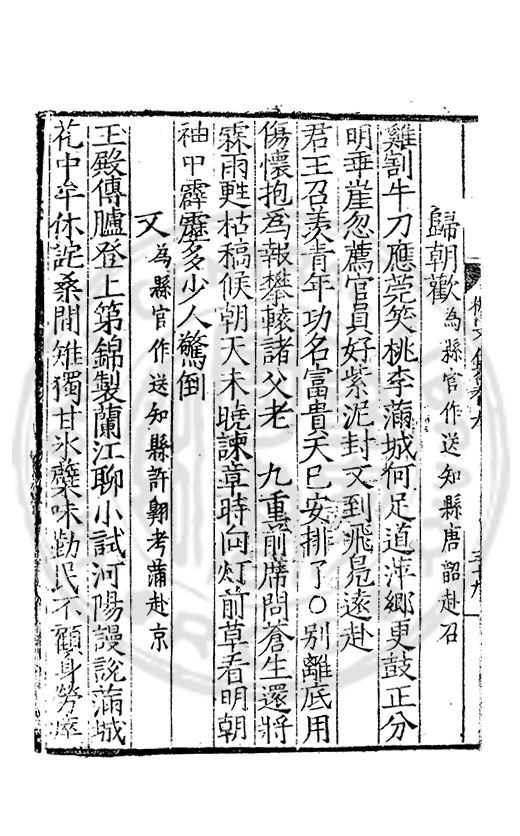 歸朝歡為縣官作送知縣唐韶赴召
雞割牛刀應莞笑桃李滿城何足道萍鄉更鼓正分
明乖崖忽薦官員好紫泥封又到飛鳧遠赴
君王召羨青年功名富貴天已安排了○别離底用
傷懷抱為報攀轅諸父老　九重前席問蒼生還將
霖雨甦枯稿候朝天未曉諫章時向灯前草看明朝
袖中霹靂多少人驚倒
又為縣官作送知縣許翺考蒲赴京
玉殿傳臚登上第錦製蘭江聊小試河陽謾說滿城
花中牟休詫桑間雉獨甘氷蘖味勤民不顧身勞瘁